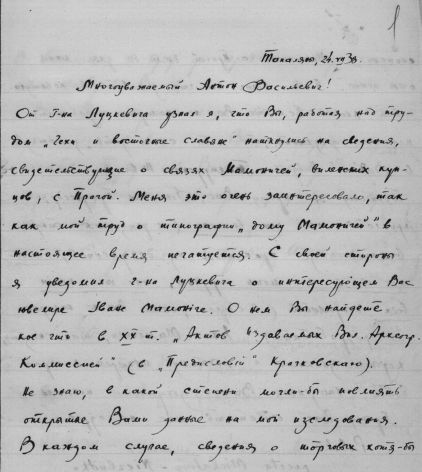 1
24.VII 38.
Многоуважаемый Антон Васильевич!
От г-на Луцкевича узнал я, что Вы, работая над тру-
дом „Чехи и восточные славяне" наткнулись на сведения,
свидетельствующие о связях Мамоничей, виленских куп-
цов, с Прагой. Меня это очень заинтересовало, так
как мой труд о типографии „дому Мамоничей" в
настоящее время печатается. С своей стороны
я уведомил г-на Луцкевича о интересующем Вас
ювелире Іване Мамониче. О нем Вы найдете
кое-что в XX т. „Актов Издаваемых Вил. Археогр.
Комиссией" (в „Предисловіи" Крачковскаго).
Не знаю, в какой степени могли-бы повлиять
открытые Вами данные на мои изследования.
В каждом случае, сведения о торговых